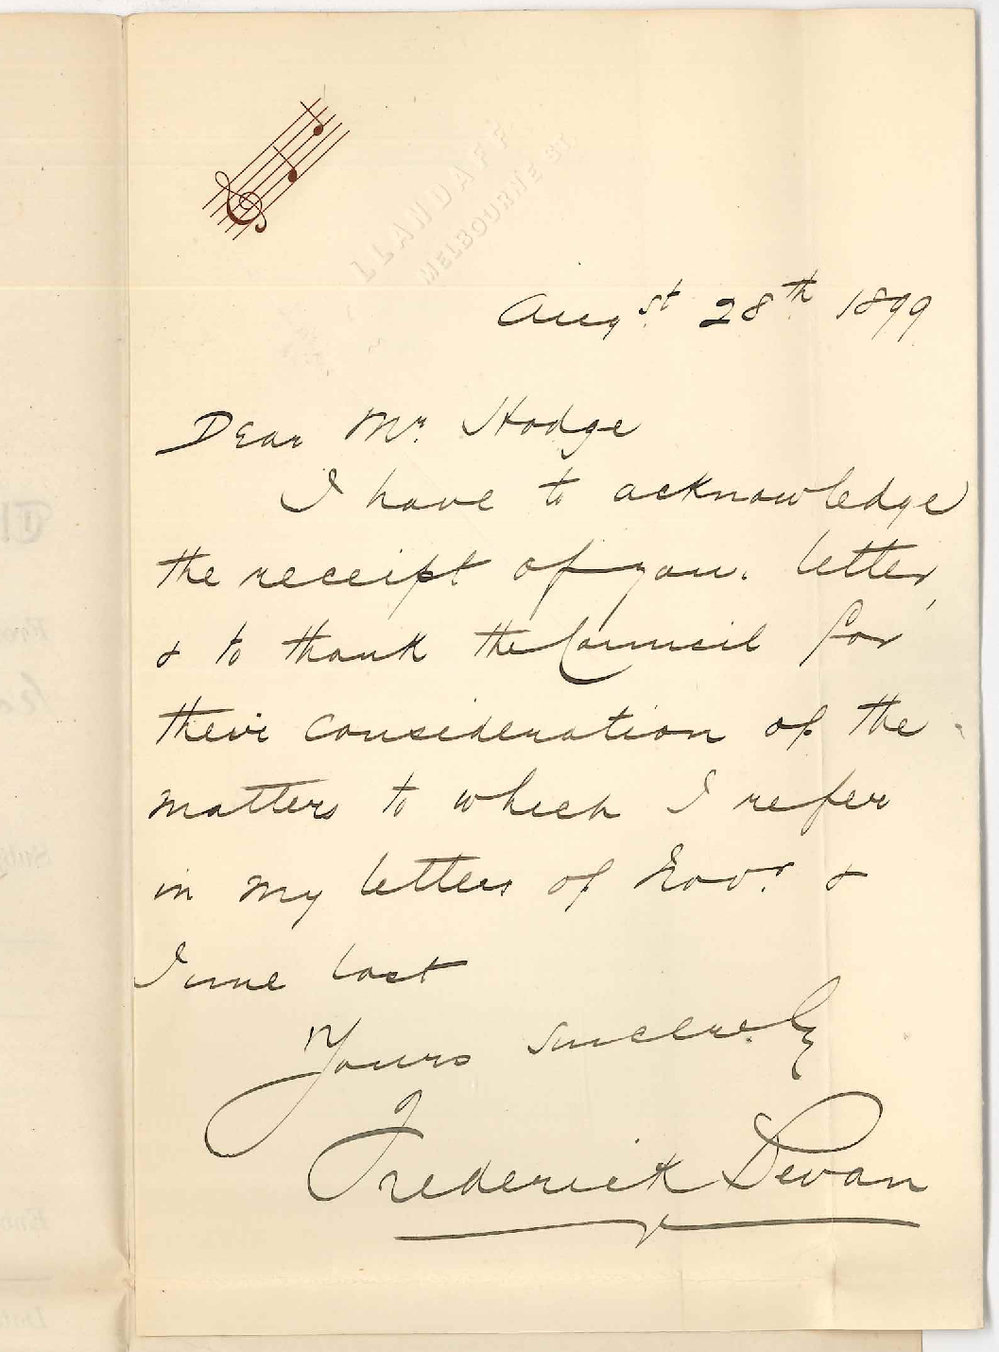 LLANDAFF
MELBOURNE ST.
Augst 28th 1899
Dear Mr Hodge
I have to acknowledge
the receipt of your letter,
& to thank the Council for
their consideration of the
matters to which I refer
in my letters of Novr. &
June last
Yours sincerely
Frederick Bevan